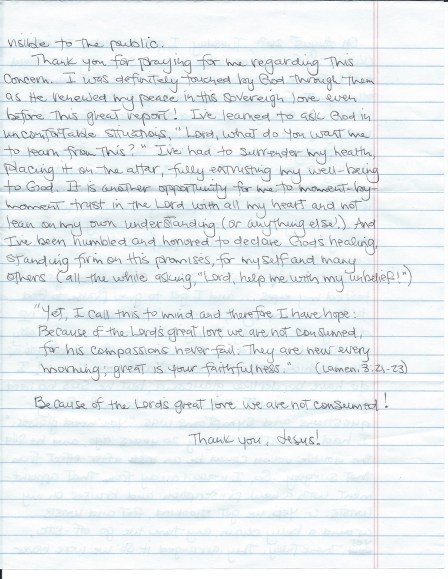 visible to the public.
Thank you for praying for me regarding this
concern. I was definitely touched by God through them
as He renewed my peace in this sovereign love even
before this great report! I've learned to ask God in
uncomfortable situations, "Lord, what do You want me
to learn from this?" I've had to surrender my health,
placing it on the altar, fully entrusting my well-being
to God. It is another opportunity for me to moment-by-
moment trust in the Lord with all my heart and not
lean on my own understanding (or anything else!) And
I've been humbled and honored to declare God's healing,
standing firm on this promises, for myself and many
others (all the while asking, "Lord, help me with my unbelief!")
"Yet, I call this to mind and therefore I have hope:
Because of the Lord's great love we are not consumed,
for his compassions never fail. They are new every
morning; great is your faithfulness." (Lamen. 3:21-23)
Because of the Lord's great love we are not consumed!
Thank you, Jesus!